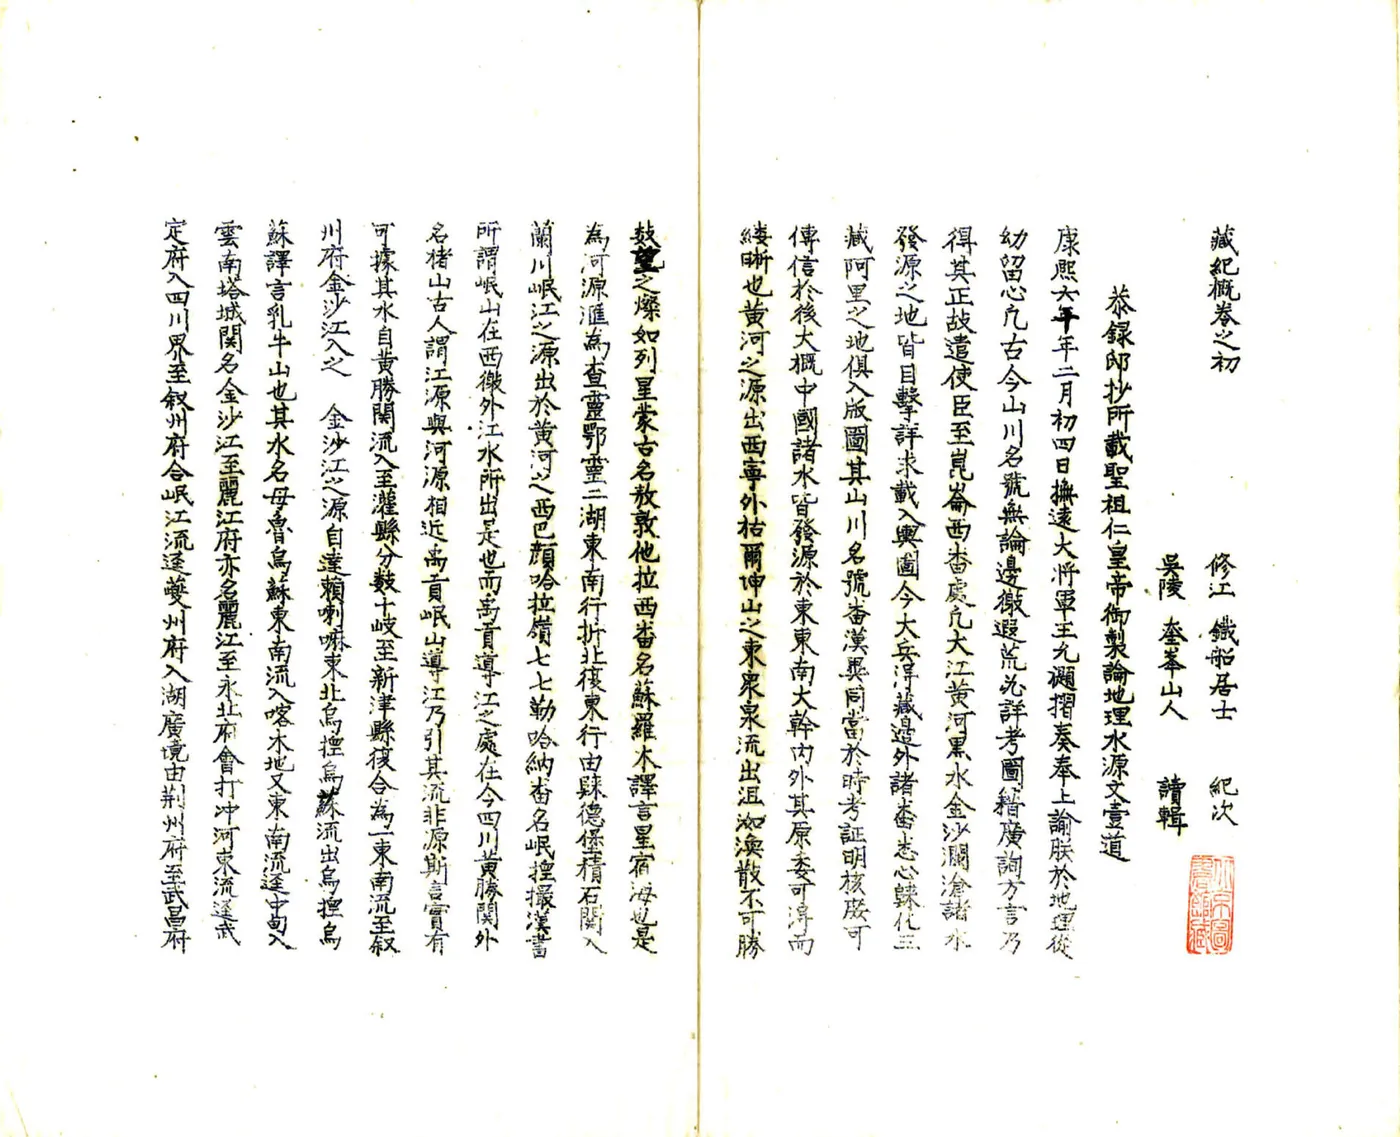 藏紀概卷之初
修江 鐵船居士 紀次
吳陵 奎峯山人 讀輯
恭録邸抄所載聖祖仁皇帝御製論地理水源文壹道
康熙六年年二月初四日撫遠大將軍王允禵摺奏奉上諭朕於地理從
幼留心凡古今山川名號無論邊徼遐荒必詳考圖籍廣詢方言乃
得其正故遣使臣至崑崙西番處凡大江黃河黑水金沙瀾滄諸水
發源之地皆目擊詳求載入輿圖今大兵淂藏邉外諸番悉心歸化三
藏阿里之地俱入版圖其山川名號番漢異同當於時考証明核庶可
傳信於後大概中國諸水皆發源於東東南大幹內外其原委可淂而
縷晰也黃河之源出西寧外枯爾坤山之東衆泉流出沮洳渙散不可勝
數望之燦如列星蒙古名敖敦他拉西番名蘇羅木譯言星宿海也是
為河源滙為查靈鄂靈二湖東南行折北復東行由歸德堡積石関入
蘭川岷江之源出於黃河之西巴顔哈拉嶺七七勒哈納番名岷捏撮漢書
所謂岷山在西徼外江水所出是也而禹貢導江之處在今四川黃勝関外
名楮山古人謂江源與河源相近禹貢岷山導江乃引其流非源斯言實有
可據其水自黃勝関流入至灌縣分數十岐至新津縣復合為一東南流至叙
川府金沙江入之 金沙江之源自達賴喇嘛東北烏捏烏蘇流出烏捏烏
蘇譯言乳牛山也其水名母魯烏蘇東南流入喀木地又東南流逕中甸入
雲南塔城関名金沙江至麗江府亦名麗江至永北府會打冲河東流逕武
定府入四川界至叙州府合岷江流逕夔州府入湖廣境由荆州府至武昌府